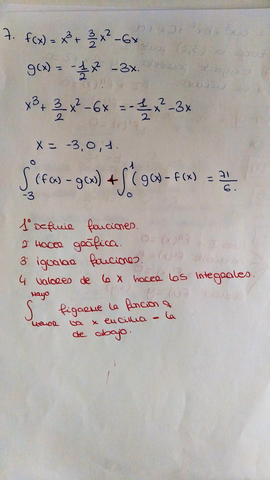 7. f(x) = x³ + 3/2 x² - 6x
g(x) = -1/2 x² - 3x.
x³ + 3/2 x² - 6x = -1/2 x² - 3x
x = -3, 0, 1.
∫₋₃⁰ (f(x) - g(x)) + ∫₀¹ (g(x) - f(x) = 71/6.
1º Definir funciones.
2 Hacer gráfica.
3 igualar funciones.
4 valores de la x hacer las integrales.
mayo
∫ fijarme la funcion q
menor va x encima - la
de abajo.